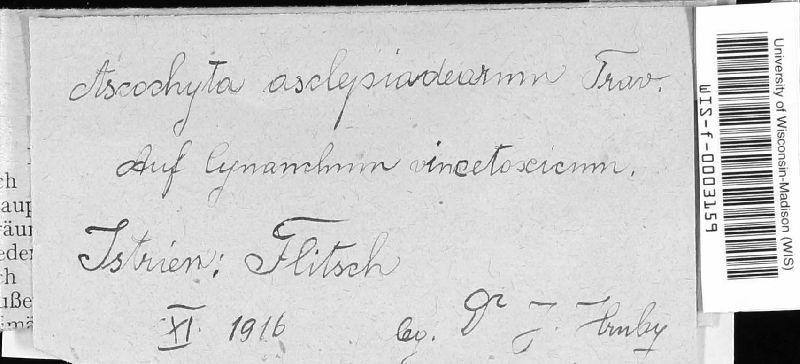 Ascochyta asclepiadearum Trav.
Auf Cynanchum vincetoxicum.
Istrien: Flitsch
XI. 1916 leg. Dr J. Hruby
University of Wisconsin-Madison (WIS)
WIS-f-0003159
ch
aup
räur
eder
ch
uße
imä